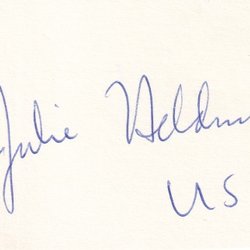 Julie Heldm
US